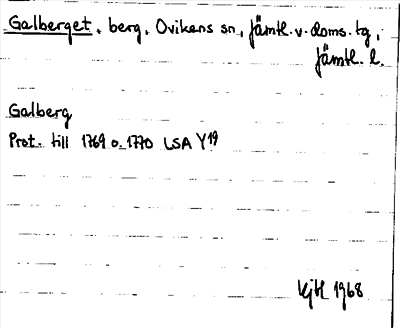 Galberget, berg, Ovikens sn, Jämtl. v. doms. tg,
Jämtl. l.
Galberg
Prot. till 1769 o. 1770 LSA Y19
1968